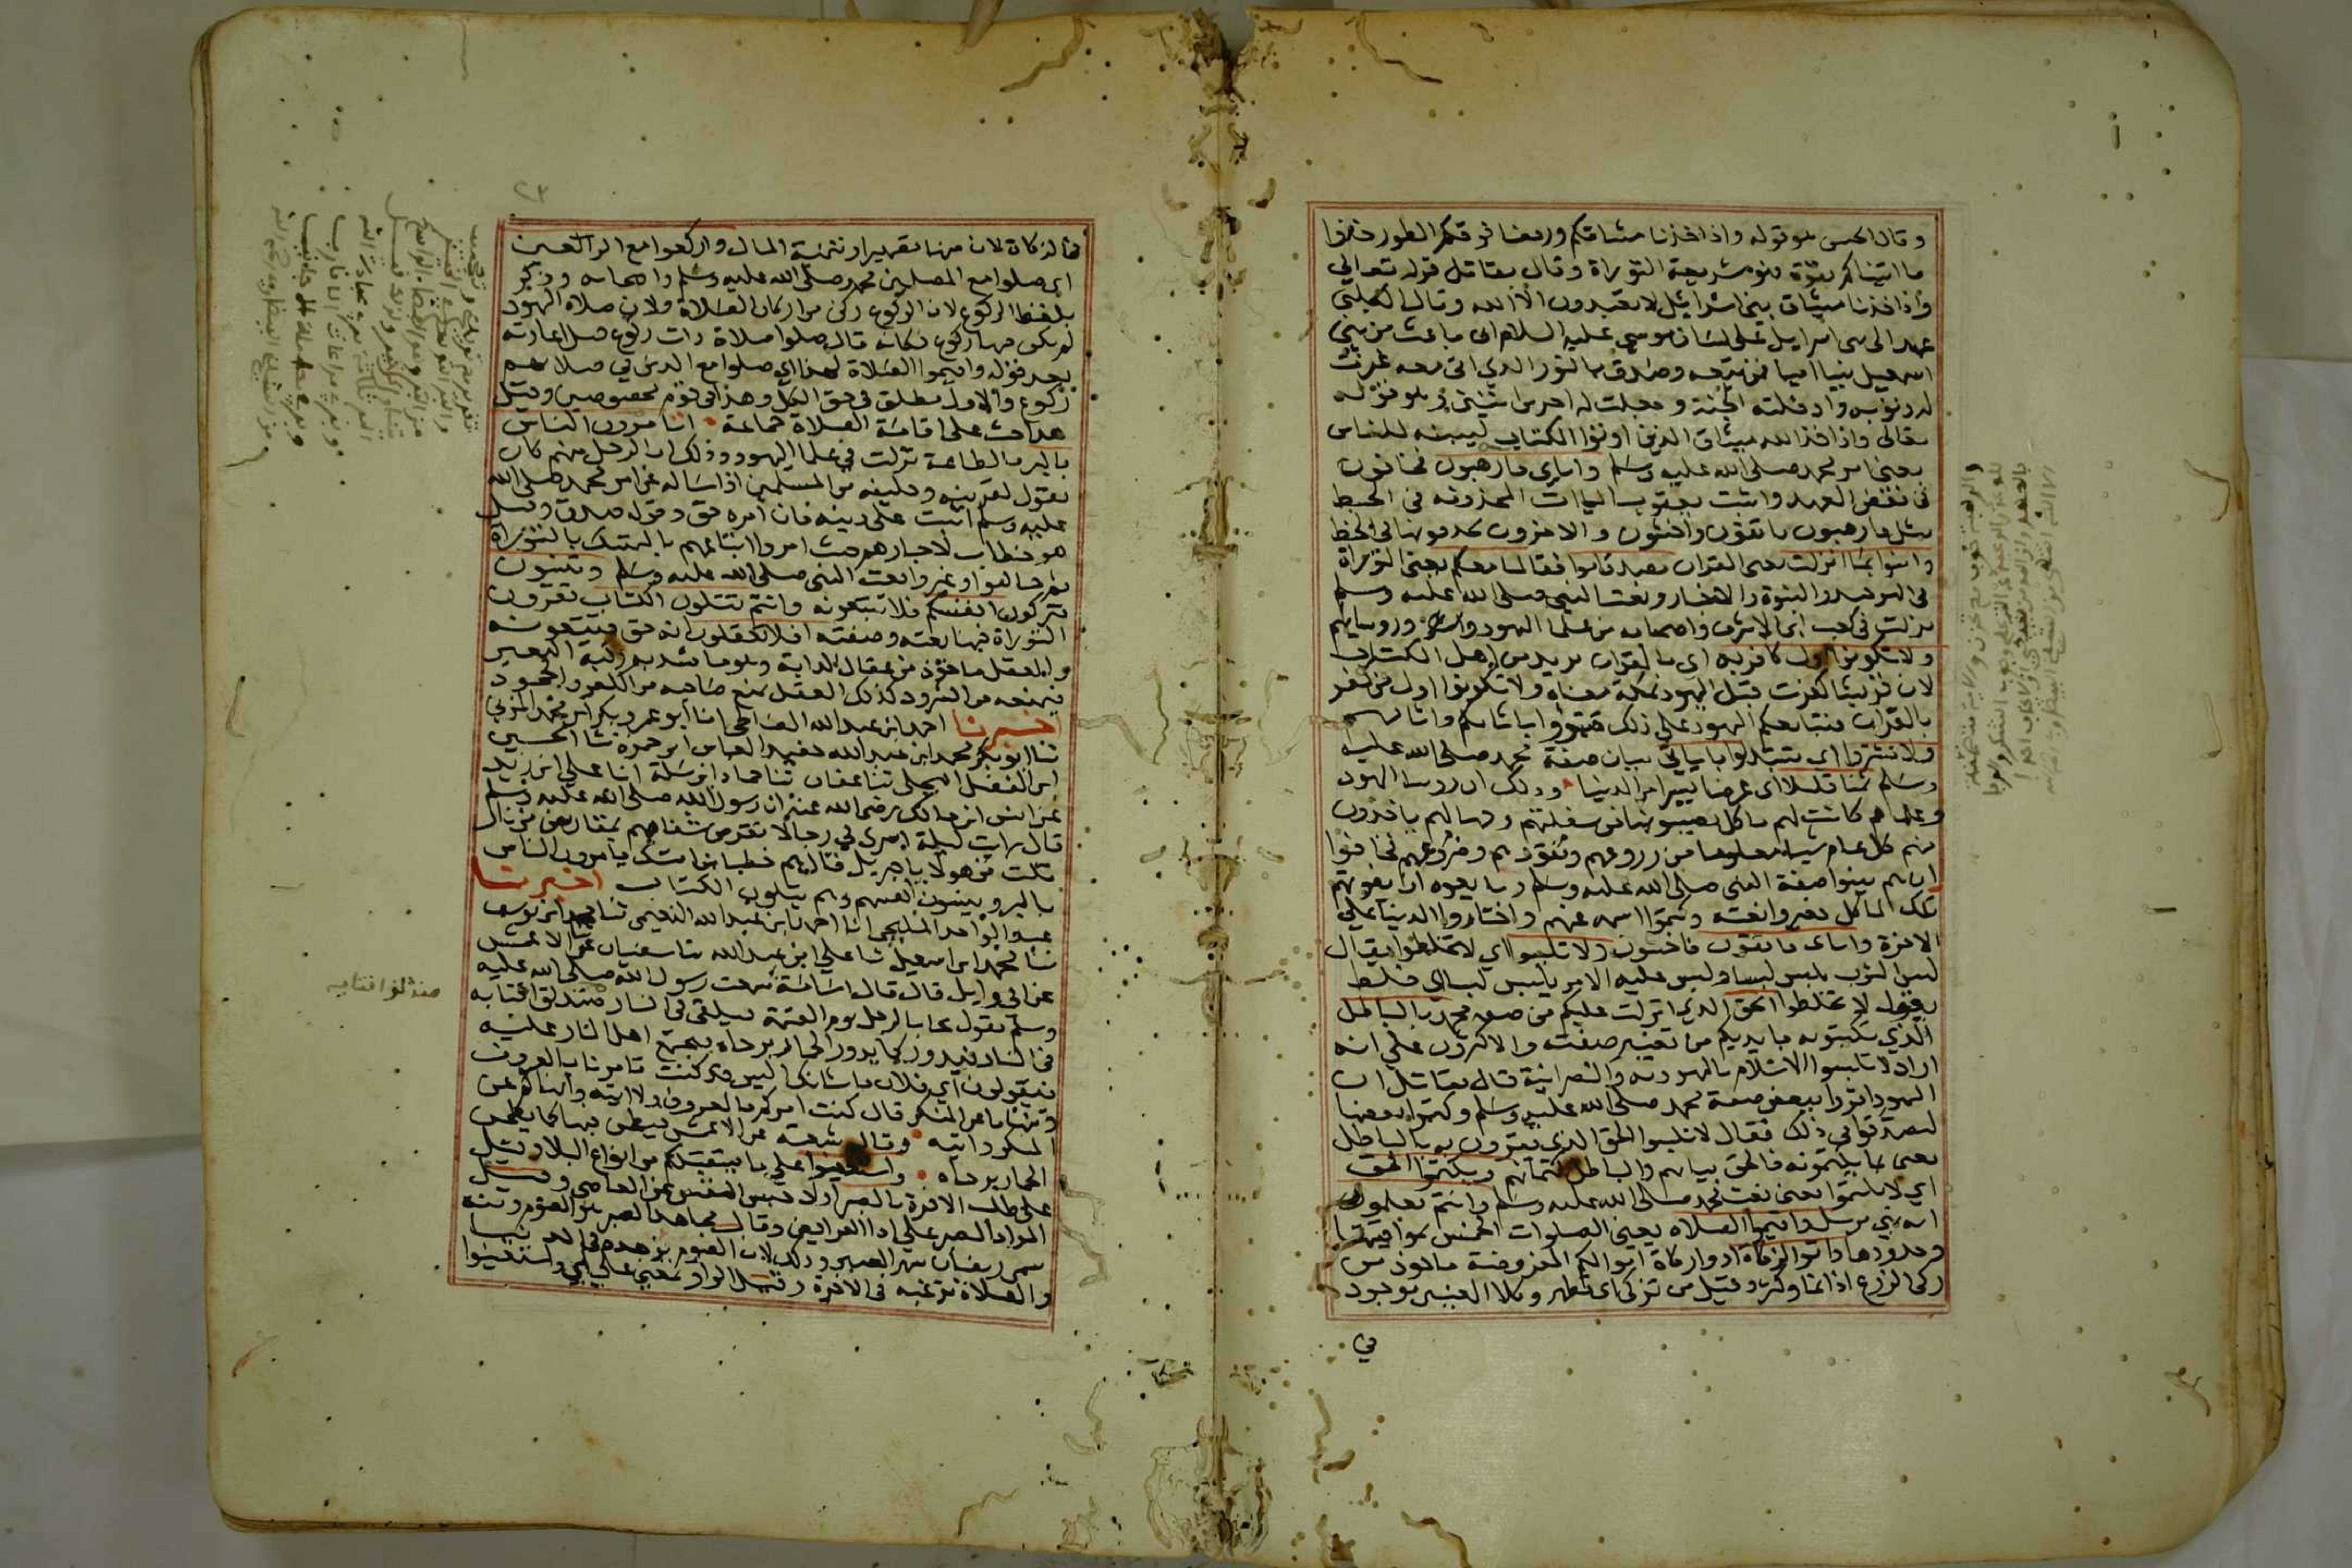 وقال الحسن هو قوله واذ اخذنا ميثاقكم ورفعنا فوقكم الطور خذوا
ما اتيناكم بقوة فهو شريعة التوراة وقال مقاتل قوله تعالي
واذ اخذنا ميثاق بني اسرائيل لا تعبدون الا الله وقال الكلبي
عهد الي بني اسرايل علي لسان موسي عليه السلام اني باعث من بني
اسمعيل نبيا اميا فمن تبعه وصدق بالنور الذي اتي معه غفرت
له ذنوبه وادخلته الجنة وجعلت له اجرين اثنين وهو قوله
تعالي واذ اخذ الله ميثاق الذين اوتوا الكتاب ليبيننه للناس
يعني امر محمد صلي الله عليه وسلم واياي فارهبون فخافون
في نقض العهد واثبت يعقوب الياات المحذوفه في الخط
مثل فارهبون فاتقون واخشون والاخرون يحذفونها في الخط
وامنوا بما انزلت يعني القران مصدقا موافقا لما معكم يعني التوراة
في التوحيد والنبوة والاخبار ونعت النبي صلي الله عليه وسلم
نزلت في كعب ابن الاشرف واصحابه من علما اليهود وروسايهم
ولا تكونوا اول كافر به اي بالقران يريد من اهل الكتاب
لان قريشا كفرت قبل اليهود بمكة معناه ولا تكونوا اول من كفر
بالقران فيتابعكم اليهود علي ذلك فتبوؤا باثامكم واثامهم
ولا تشتروا اي تستبدلوا باياتي ببيان صفة محمد صلي الله عليه
وسلم ثمنا قليلا اي عرضا يسيرا من الدنيا وذلك ان روسا اليهود
وعلماهم كانت لهم ماكل يصيبونها من سفلتهم وجهالهم ياخذون
منهم كل عام شيا معلوما من زروعهم ونقودهم وضروعهم فخافوا
ان هم بينوا صفة النبي صلي الله عليه وسلم وبايعوه ان تفوتهم
تلك الماكل فغيروا نعته وكتموا اسمه عنهم واختاروا الدنيا علي
الاخرة واياي فاتقون فاخشون ولا تلبسوا اي لا تخلطوا يقال
لبس الثوب يلبس لبسا ولبس عليه الامر يلبس لبسا اي خلط
يقول لا تخلطوا الحق الذي انزلت عليكم من صفة محمد بالباطل
الذي تكتبونه بايديكم من تغيير صفته والاكثرون علي انه
اراد لا تلبسوا الاسلام باليهودية والنصرانية قال مقاتل ان
اليهود اقروا ببعض صفة محمد صلي الله عليه وسلم وكتموا بعضها
ليصدقوا في ذلك فقال لا تلبسوا الحق الذي تقرون به بالباطل
يعني بما يكتمونه فالحق بيانهم والباطل كتمانهم وتكتموا الحق
اي لا تكتموا يعني نعت محمد صلي الله عليه وسلم وانتم تعلمون
انه نبي مرسل واقيموا الصلاه يعني الصلوات الخمس بمواقيتها
وحدودها واتوا الزكاة ادوا زكاة اموالكم المفروضة ماخوذ من
زكي الزرع اذا نما وكثر وقيل من تزكي اي تطهر وكلا المعنيين موجود
في
٢٣
في الزكاة لان فيها تطهيرا وتنمية المال واركعوا مع الراكعين
اي صلوا مع المصلين محمد صلي الله عليه وسلم واصحابه وذكر
بلفظ الركوع لان الركوع ركن من اركان الصلاة ولان صلاة اليهود
لم يكن فيها ركوع فكانه قال صلوا صلاة ذات ركوع قيل اعادته
بعد قوله واقيموا الصلاة لهذا اي صلوا مع الذين في صلاتهم
ركوع والاول مطلق في حق الكل وهذا في قوم مخصوصين وقيل
هذا حث علي اقامة الصلاة جماعة اتامرون الناس
بالبر بالطاعة نزلت في علما اليهود وذلك ان الرجل منهم كان
يقول لقريبه وحليفه من المسلمين اذا ساله عن امر محمد صلي الله
عليه وسلم اثبت علي دينه فان امره حق وقوله صدق وقيل
هو خطاب لاحبارهم حيث امروا اتباعهم بالتمسك بالتوراة
ثم خالفوا وغيروا نعت النبي صلي الله عليه وسلم وتنسون
تتركون انفسكم فلا تتبعونه وانتم تتلون الكتاب تقرون
التوراة فيها نعته وصفته افلا تعقلون انه حق فتتبعونه
والعقل ماخوذ من عقال الدابة وهو ما يشد به ركبة البعير
فيمنعه من الشرود كذلك العقل يمنع صاحبه من الكفر والجحود
اخبرنا احمد ابن عبد الله الصالحي انا ابو عمرو بكر ابن محمد المزني
ثنا ابو بكر محمد ابن عبد الله حفيد العباس ابن حمزة ثنا الحسين
ابن الفضل البجلي ثنا عفان ثنا حماد ابن سلمة انا علي ابن زيد
عن انس ابن مالك رضي الله عنه ان رسول الله صلي الله عليه وسلم
قال رايت ليلة اسري بي رجالا تقرض شفاههم بمقاريض من نار
قلت من هولا يا جبريل قال هم خطبا من امتك يامرون الناس
بالبر وينسون انفسهم وهم يتلون الكتاب اخبرنا
عبد الواحد المليحي انا احمد ابن عبد الله النعيمي ثنا محمد ابن يوسف
ثنا محمد ابن اسمعيل ثنا علي ابن عبد الله ثنا سفيان عن الاعمش
عن ابي وايل قال قال اسامة سمعت رسول الله صلي الله عليه
وسلم يقول يجا بالرجل يوم القيمة فيلقي في النار فتندلق اقتابه
في النار فيدور كما يدور الحمار برحاه فيجتمع اهل النار عليه
فيقولون اي فلان ما شانك اليس قد كنت تامرنا بالمعروف
وتنهانا عن المنكر قال كنت امركم بالمعروف ولا اتيه وانهاكم عن
المنكر واتيه وقال شعبة عن الاعمش فيطحن فيها كما يطحن
الحمار برحاه واستعينوا علي ما يستقبلكم من انواع البلا وقيل
علي طلب الاخرة بالصبر اراد حبس النفس عن المعاصي وقيل
المراد الصبر علي ادا الفرايض وقال مجاهد الصبر هو الصوم ومنه
سمي رمضان شهر الصبر وذلك لان الصوم يزهده في الدنيا
والصلاة ترغبه في الاخرة وقيل الواو بمعني علي اي واستعينوا